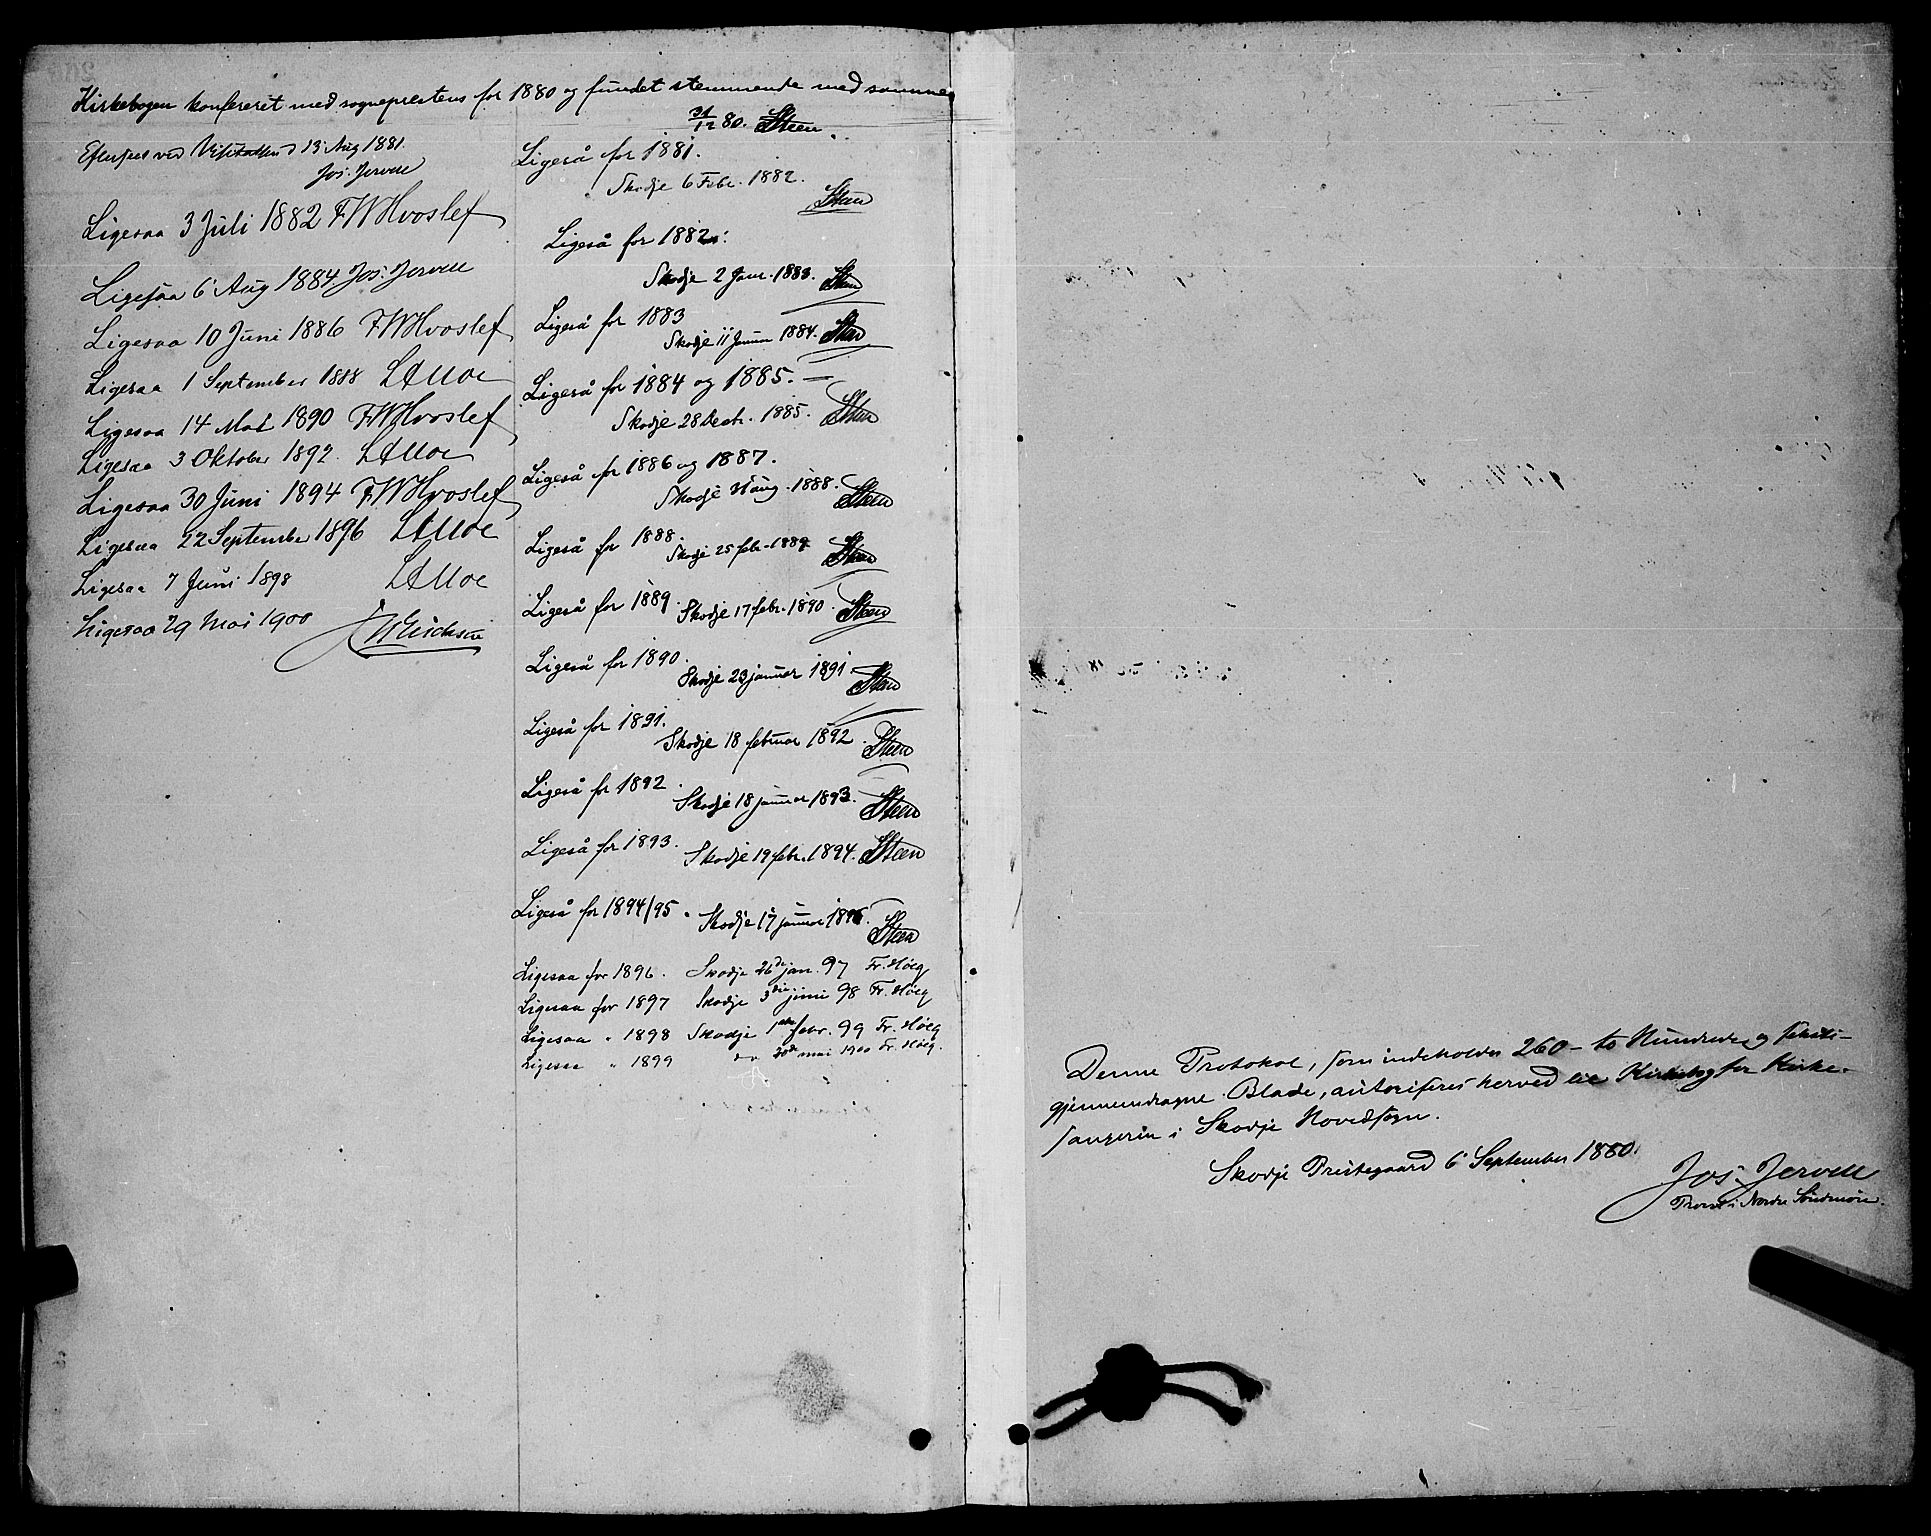 Kirkebogen konfereret med sogneprestens for 1880 og fundet stemmende med samme
31/12 80. Steen.
Efterseet ved Visitatsen d 13 Aug 1881.
Jos. Jervell
Ligesaa 3 Juli 1882 FWHvoslef
Ligesaa 6 Aug 1884 Jos. Jervell
Ligesaa 10 Juni 1886 FWHvoslef
Ligesaa 1 September 1888 LAMoe
Ligesaa 14 Mai 1890 FWHvoslef
Ligesaa 3 Oktober 1892. LAMoe
Ligesaa 30 Juni 1894 FWHvoslef
Ligesaa 22 September 1896 LAMoe
Ligesaa 7 Juni 1898 LAMoe
Ligesaa 29 Mai 1900
Ligeså for 1881.
Skodje 6 Febr. 1882.
Steen
Ligeså for 1882.
Skodje 2 Janr. 1883. Steen
Ligeså for 1883
Skodje 11 Januar 1884. Steen
Ligeså for 1884 og 1885.
Skodje 28 Decbr. 1885. Steen
Ligeså for 1886 og 1887.
Skodje aug. 1888. Steen
Ligeså for 1888.
Skodje 25 febr. 1889 Steen
Ligeså for 1889. Skodje 17 febr. 1890. Steen
Ligeså for 1890.
Skodje 23 januar 1891. Steen
Ligeså for 1891.
Skodje 18 februar 1892. Steen
Ligeså for 1892.
Skodje 18 januar 1893. Steen
Ligeså for 1893.
Skodje 19 febr. 1894. Steen
Ligeså for 1894/95. Skodje 17 januar 1896.
Steen
Ligesaa for 1896. Skodje 26de jan. 97 Fr. Høeg
Ligesaa for 1897 Skodje 3die juni 98 Fr. Høeg
Ligesaa " 1898 Skodje 1ste febr. 99 Fr. Høeg
Ligesaa " 1899 mai 1900 Fr. Høeg.
Denne Protokol, som indeholder 260 - to Hundrede og seksti -
gjennemdragne Blade, autoriseres herved til Kirkebog for Kirke-
sangeren i Skodje Hovedsogn.
Skodje Prestegaard 6 September 1880.
Jos. Jervell
Provst i Nordre Søndmøre.